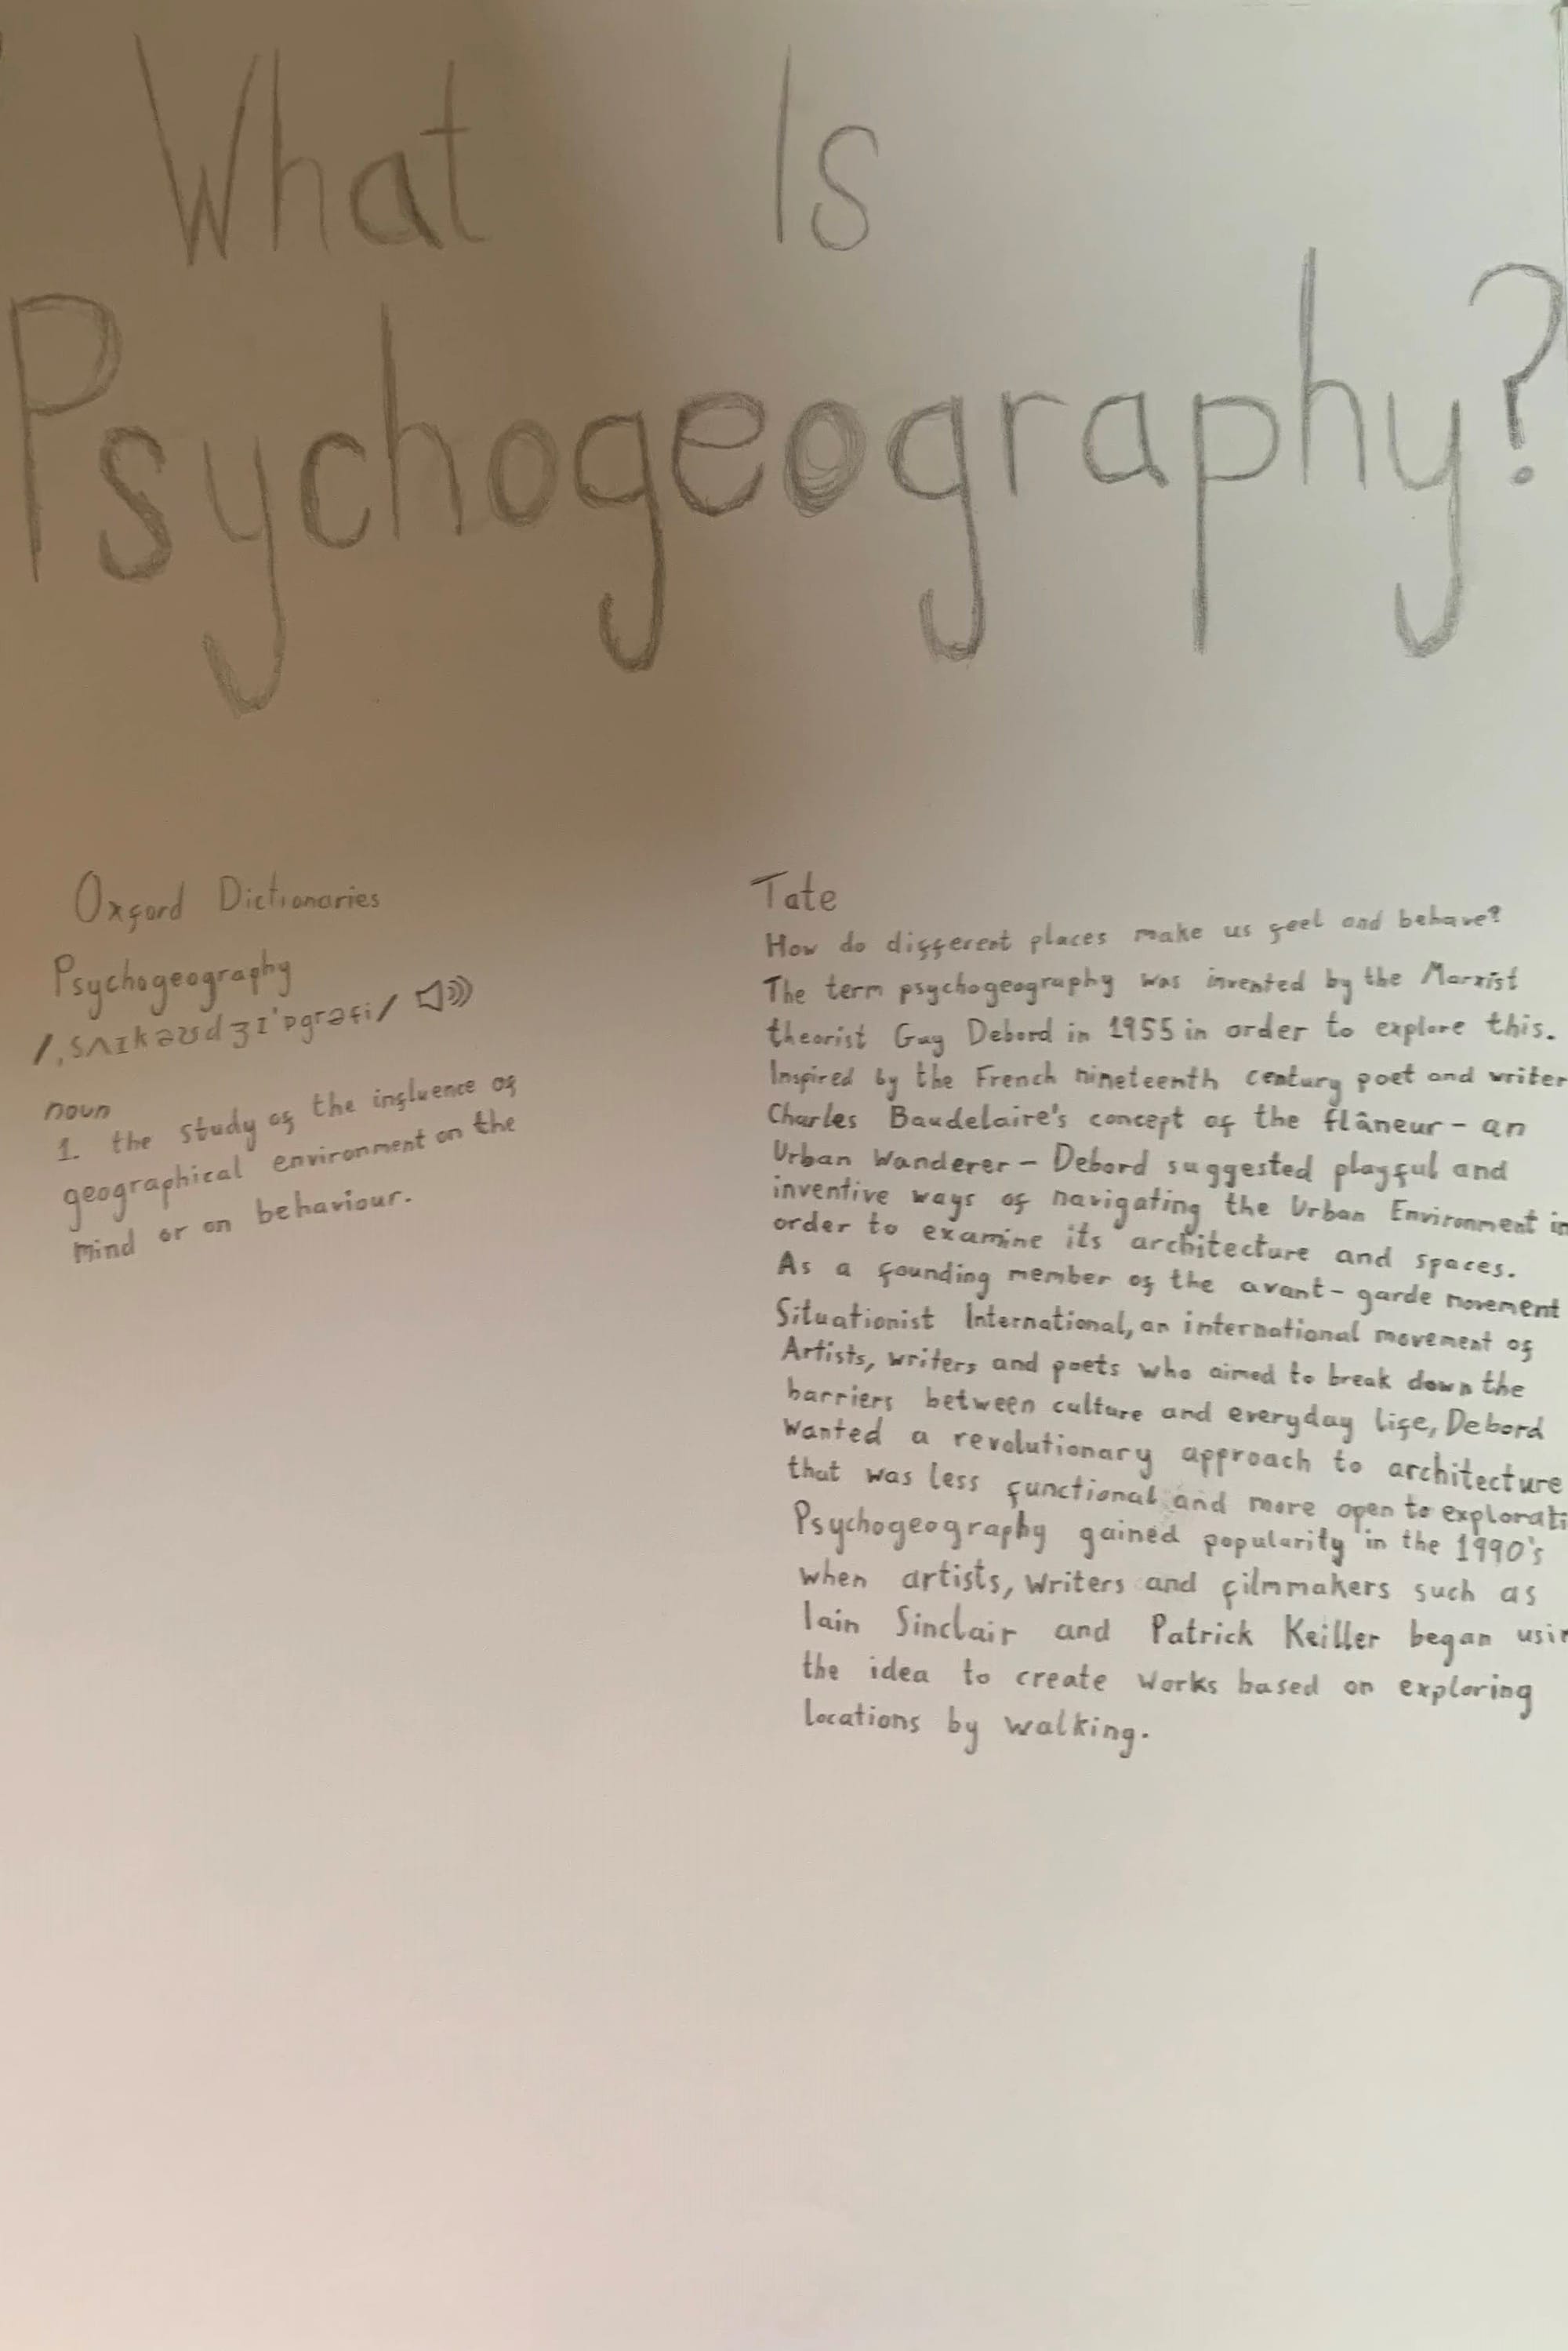 What Is
Psychogeography?
Oxford Dictionaries
Psychogeography
/ˌsʌɪkəʊdʒɪˈɒgrəfi/
noun
1. the study of the influence of
geographical environment on the
mind or on behaviour.
Tate
How do different places make us feel and behave?
The term psychogeography was invented by the Marxist
theorist Guy Debord in 1955 in order to explore this.
Inspired by the French nineteenth century poet and writer
Charles Baudelaire's concept of the flâneur - an
Urban Wanderer - Debord suggested playful and
inventive ways of navigating the Urban Environment in
order to examine its architecture and spaces.
As a founding member of the avant-garde movement
Situationist International, an international movement of
Artists, writers and poets who aimed to break down the
barriers between culture and everyday life, Debord
Wanted a revolutionary approach to architecture
that was less functional and more open to explorati
Psychogeography gained popularity in the 1990's
when artists, writers and filmmakers such as
Iain Sinclair and Patrick Keiller began usin
the idea to create works based on exploring
locations by walking.